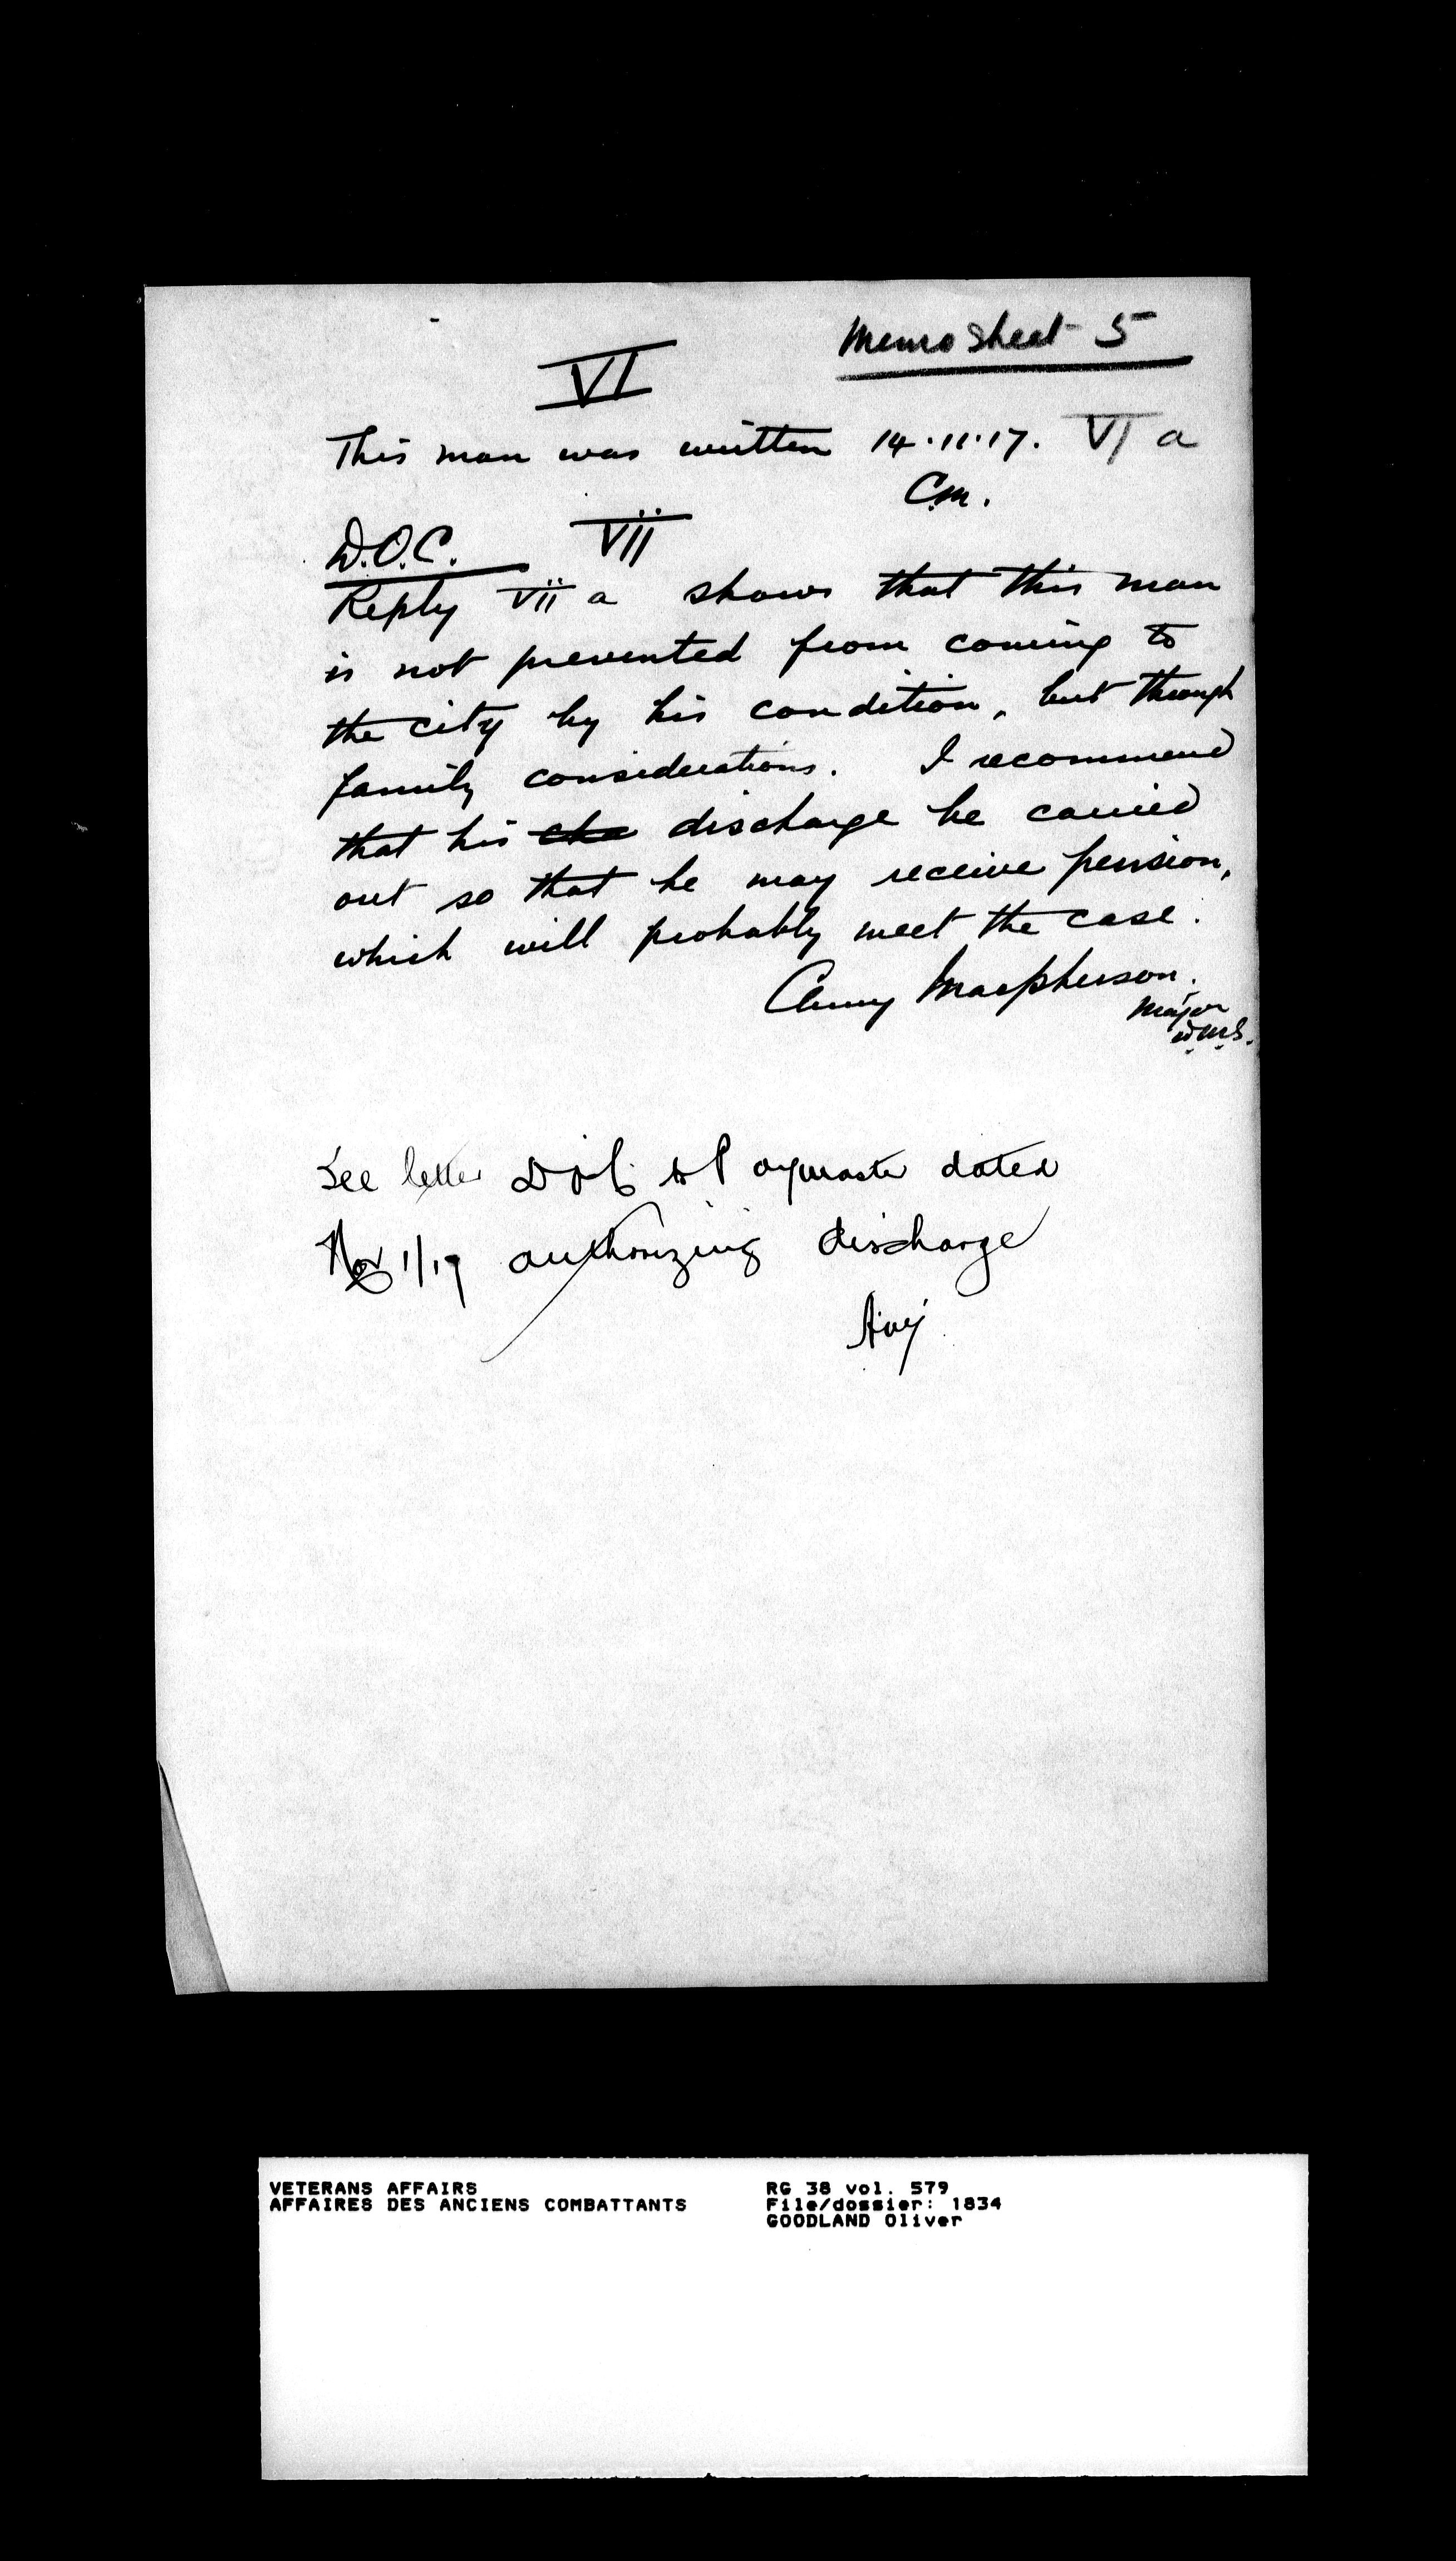 Memo Sheet 5
VI
This man was written 14.11.17. VI a
C.M.
D.O.C. vii
Reply vii a shows that this man
is not prevented from coming to
the city by his condition, but through
family considerations. I recommend
that his discharge be carried
out so that he may receive pension,
which will probably meet the case.
Cluny Macpherson.
Major
D.M.S.
See letter to Paymaster dated
Nov 1/17 authorizing discharge
VETERANS AFFAIRS
AFFAIRES DES ANCIENS COMBATTANTS
RG 38 vol. 579
File/dossier: 1834
GOODLAND Oliver